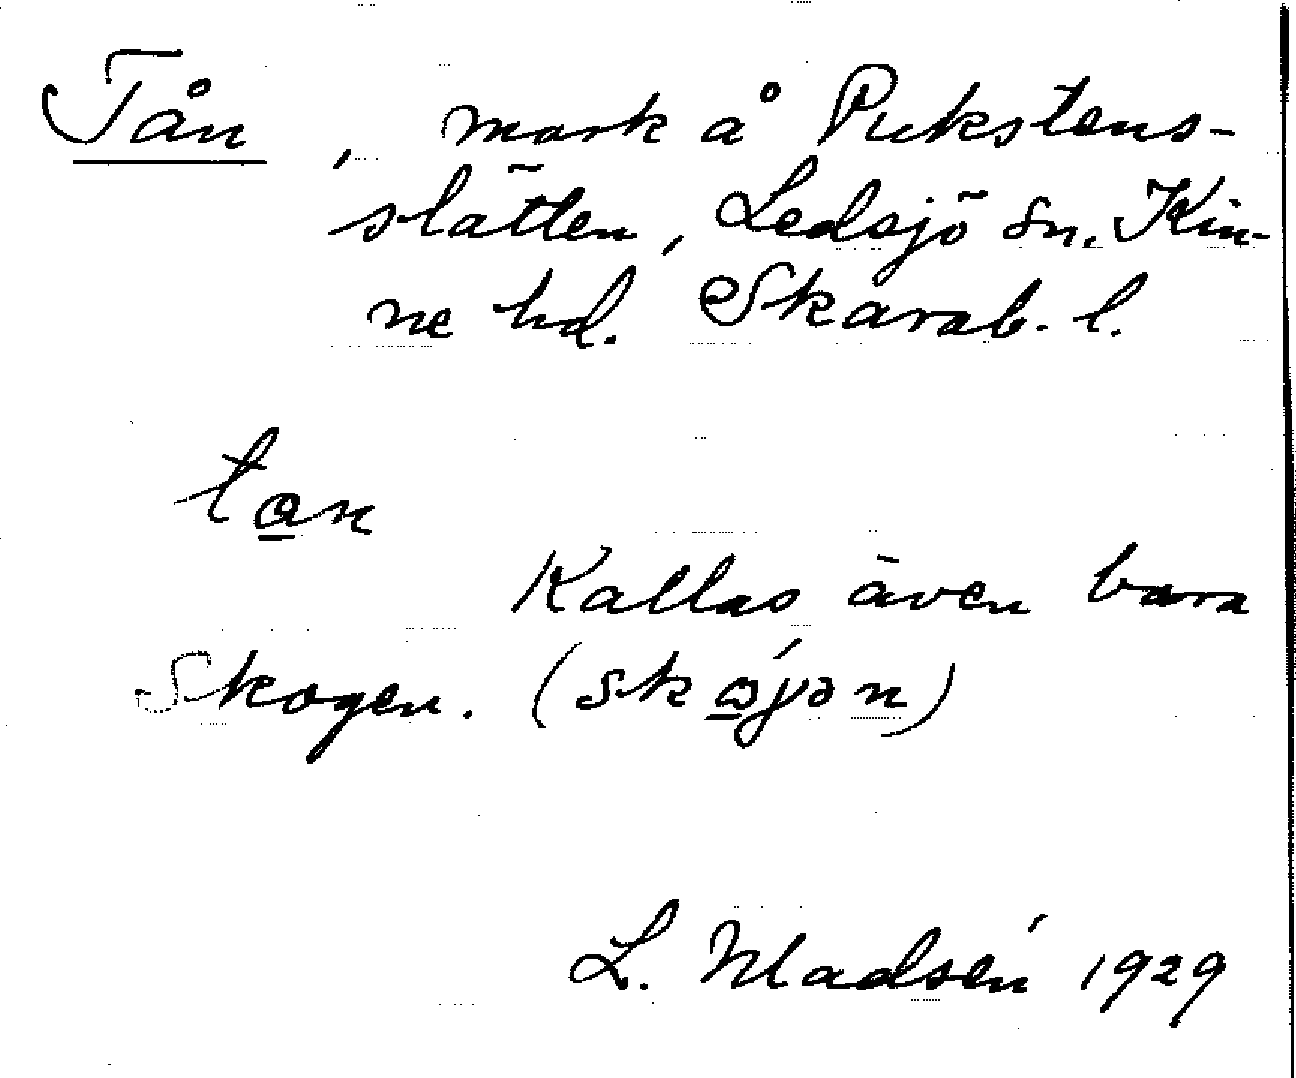 Tån, mark å Pukstens-
slätten, Ledsjö sn. Kin-
ne hd. Skarab. l.
tan
Kallas även bara
Skogen. (skɷ́γən)
L. Madsén 1929